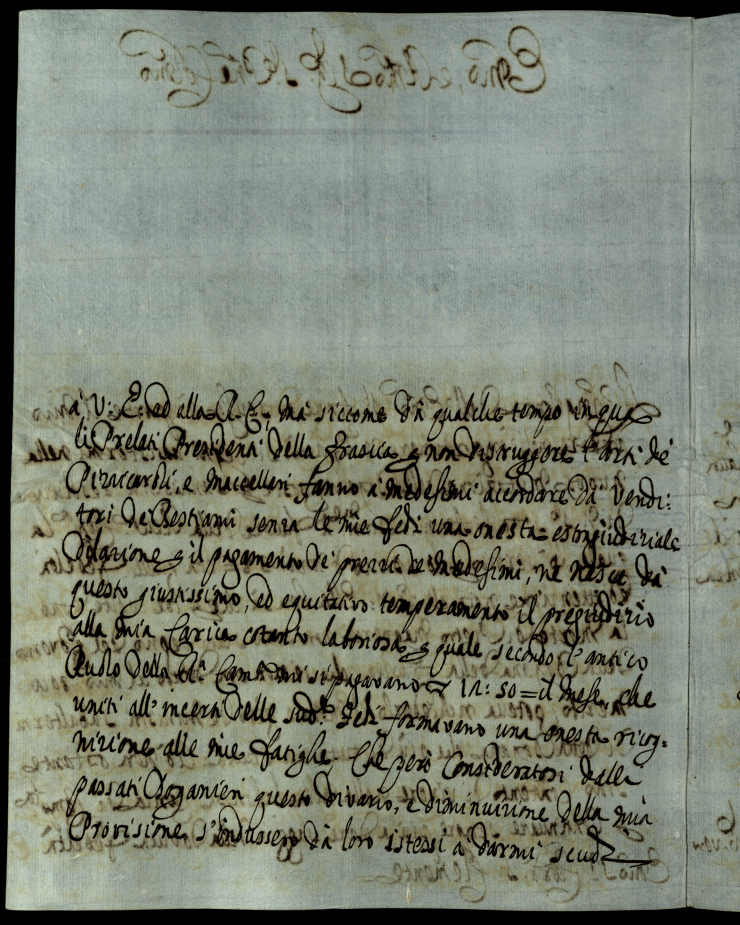 à V: E: ed alla R. C., mà siccome dà qualche tempo in quà
li Prelati Presidenti della Grascia p non distruggere l'arti dè
Pizzicaroli, e Macellari fanno à medesimi accordare dà vendi:
tori de Bestiami senza le mie fedi una onesta estragiudiziale
Dilazione p il pagamento de prezzi de medesimi, nè nasce dà
questo giustissimo, ed equitativo temperamento il pregiudizio
alla mia Carica cotanto laboriosa, p quale secondo l'antico
Ruolo della R.a Cam.a mi si pagavano 12: 50 = il mese, che
uniti all' incerti delle sud.e Fedi formavano una onesta ricog:
nizione alle mie fatighe. Che però Consideratosi dalli
passati Doganieri questo divario, e diminuizione della mia
Provisione s'indussero dà loro istessi a darmi scudi